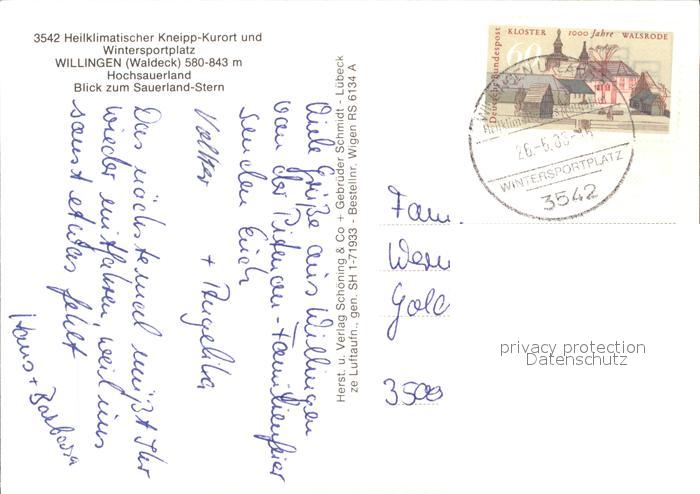 3542 Heilklimatischer Kneipp-Kurort und
Wintersportplatz
WILLINGEN (Waldeck) 580-843 m
Hochsauerland
Blick zum Sauerland-Stern
Viele Grüße aus Willingen
von der Familienfeier
senden Euch
Volker + Angelika
Das nächstemal müßt Ihr
wieder mitfahren, weil uns
sonst etwas fehlt
Hans + Barbara
Herst. u. Verlag Schöning & Co + Gebrüder Schmidt - Lübeck
ze Luftaufn., gen. SH 1-71933 - Bestellnr. Wigen RS 6134 A
KLOSTER 1000 Jahre WALSRODE
60
Deutsche Bundespost
WINTERSPORTPLATZ
3542
Fam.
Wern
Gold
3500
privacy protection
Datenschutz